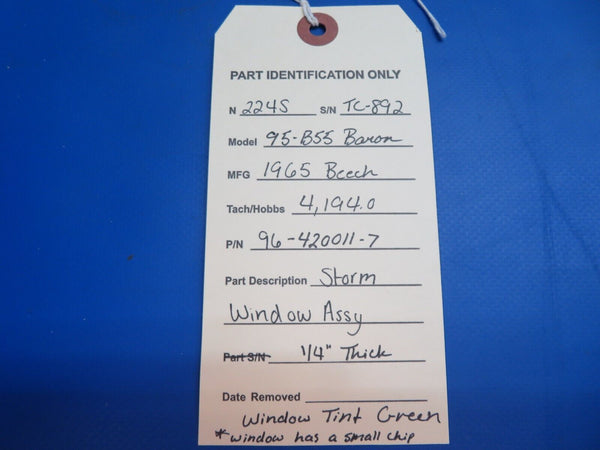 PART IDENTIFICATION ONLY
N 224S S/N TC-892
Model 95-B55 Baron
MFG 1965 Beech
Tach/Hobbs 4,194.0
P/N 96-420011-7
Part Description Storm
Window Assy
Part S/N 1/4" Thick
Date Removed
Window Tint Green
*window has a small chip